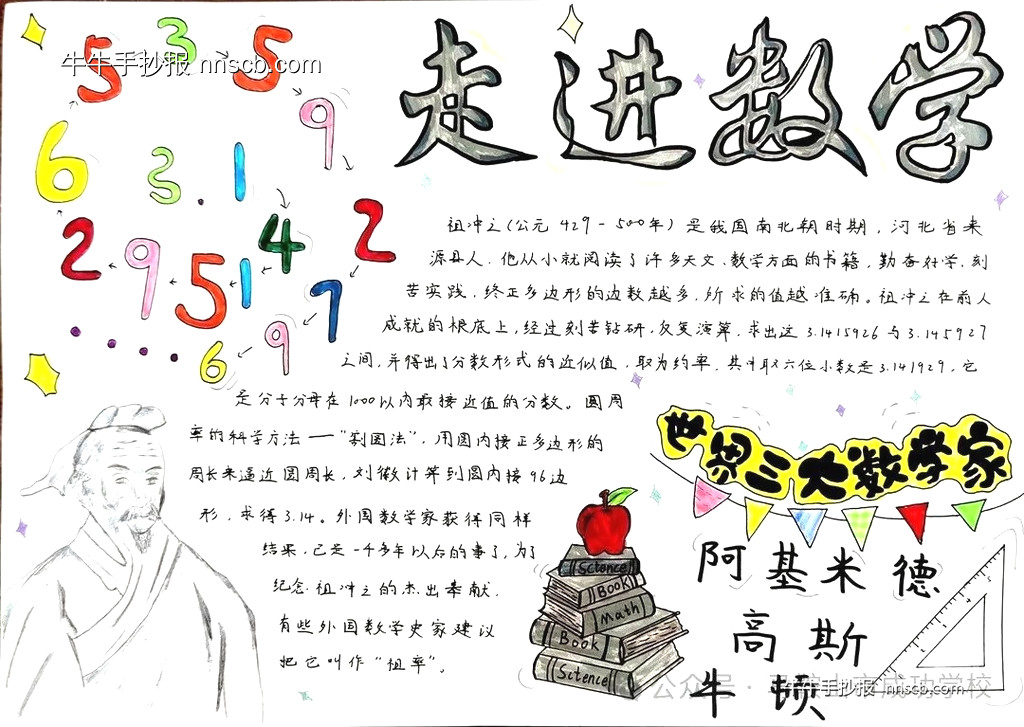 牛牛手抄报 nnscb.com
5 3 5 9
6 3 . 1
2 9 5 1 4 2
7
6 9
走进数学
祖冲之(公元 429 - 500年) 是我国南北朝时期，河北省来
源县人．他从小就阅读了许多天文、数学方面的书籍，勤奋好学，刻
苦实践，终正多边形的边数越多，所求的值越准确。祖冲之在前人
成就的根底上，经过刻苦钻研，反复演算，求出这 3.1415926 与 3.145927
之间，并得出了分数形式的近似值，取为约率，其中取六位小数是3.141929，它
是分子分母在1000以内最接近值的分数。圆周
率的科学方法一一“割圆法”，用圆内接正多边形的
周长来逼近圆周长，刘徽计算到圆内接96边
形，求得3.14。外国数学家获得同样
结果，已是一千多年以后的事了，为了
纪念祖冲之的杰出奉献，
有些外国数学史家建议
把它叫作“祖率”。
世界三大数学家
阿基米德
高斯
牛顿
Sctence
Book
Math
Book
Sctence
牛牛手抄报 nnscb.com